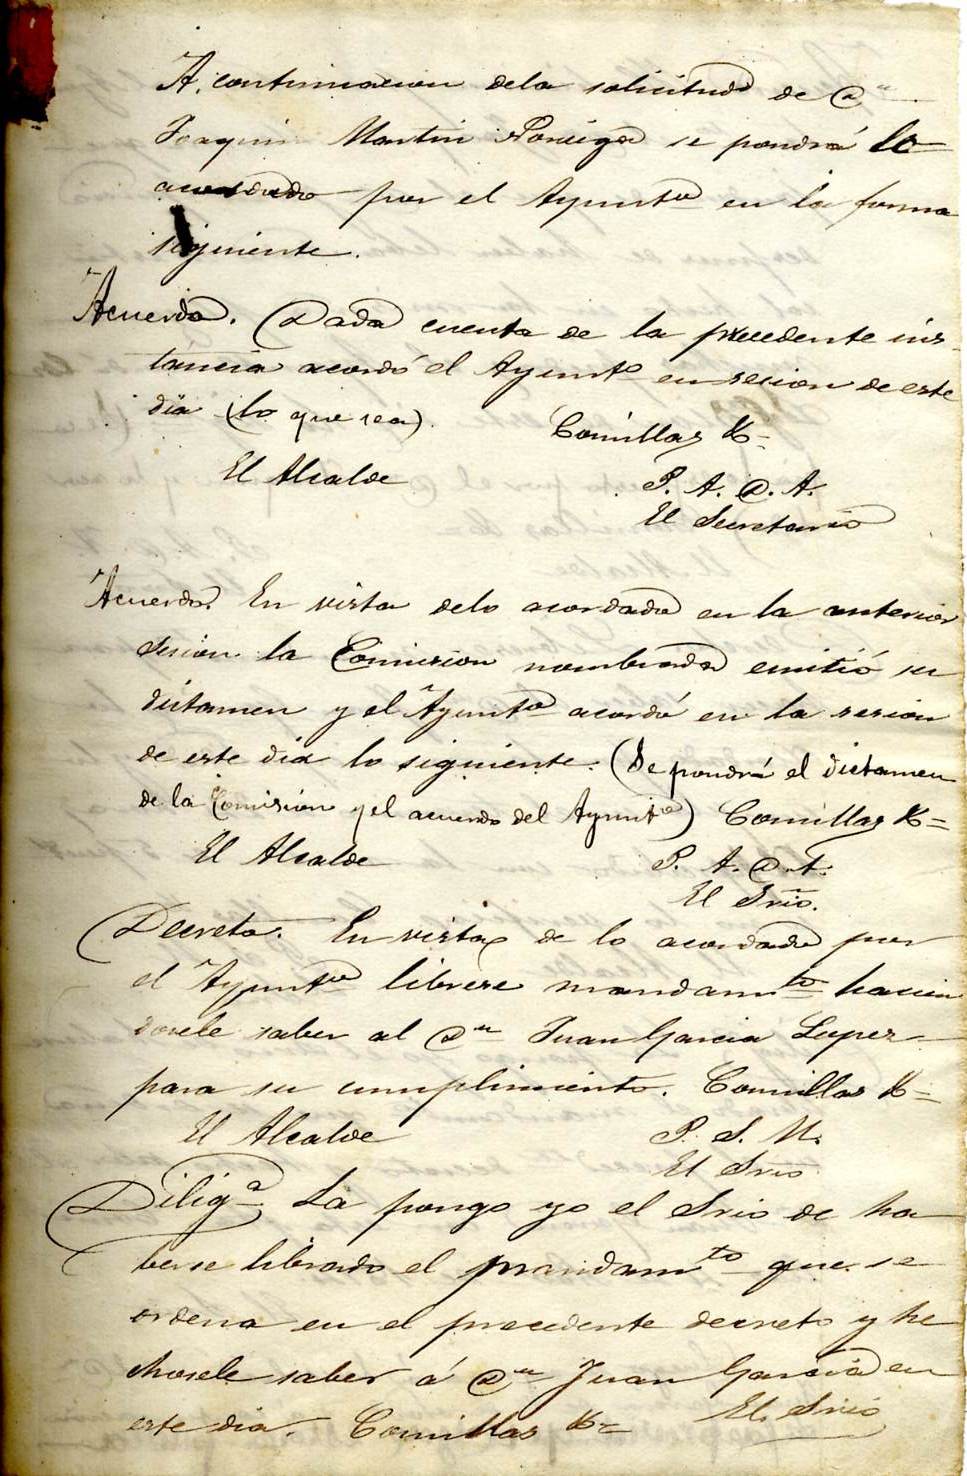 A. continuacion dela solicitud de Dn
Joaquin Martin Noriega se pondrá lo
acordado por el Ayuntº en la forma
siguiente.
Acuerdo. Dada cuenta de la precedente ins-
tancia acordó el Ayuntº en sesion de este
dia (lo que sea). Comillas &=
El Alcalde P. A. D. A.
El Secretario
Acuerdo. En vista delo acordado en la anterior
sesion la Comision nombrada emitió su
dictamen y el Ayuntº acordó en la sesion
de este dia lo siguiente. (Se pondrá el dictamen
de la Comision y el acuerdo del Ayuntº) Comillas &=
El Alcalde P. A. D. A.
El Srio.
Decreto. En vista de lo acordado por
el Ayuntº librese mandamto hacien
dosele saber al Dn Juan Garcia Lopez
para su cumplimiento. Comillas &=
El Alcalde P. S. M.
El Srio
Diligª La pongo yo el Srio de ha
berse librado el mandamto que se
ordena en el precedente decreto y he
chosele saber á Dn Juan Garcia en
este dia. Comillas &= El Srio